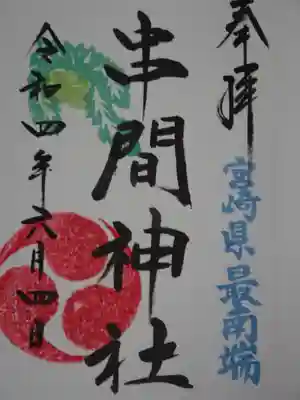 奉拝
宮崎県最南端
串間神社
令和四年六月四日